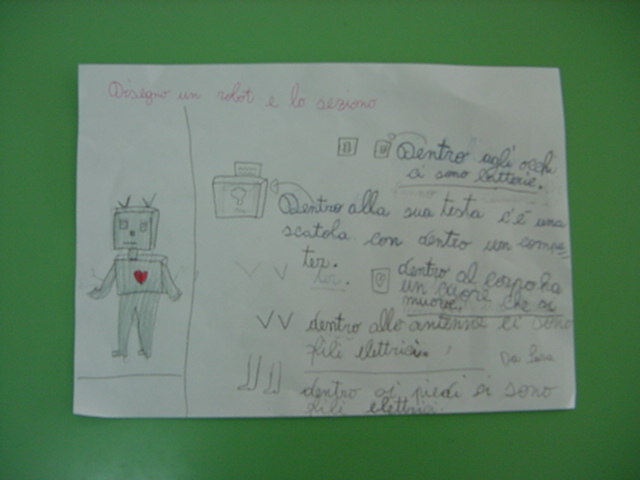 Disegno un robot e lo seziono
Dentro agli occhi
ci sono batterie.
Dentro alla sua testa c'è una
scatola con dentro un compu=
ter.
dentro al corpo ha
un cuore che si
muove.
dentro allo antenne ci sono
fili elettrici.
Da
dentro ai piedi ci sono
fili elettrici.